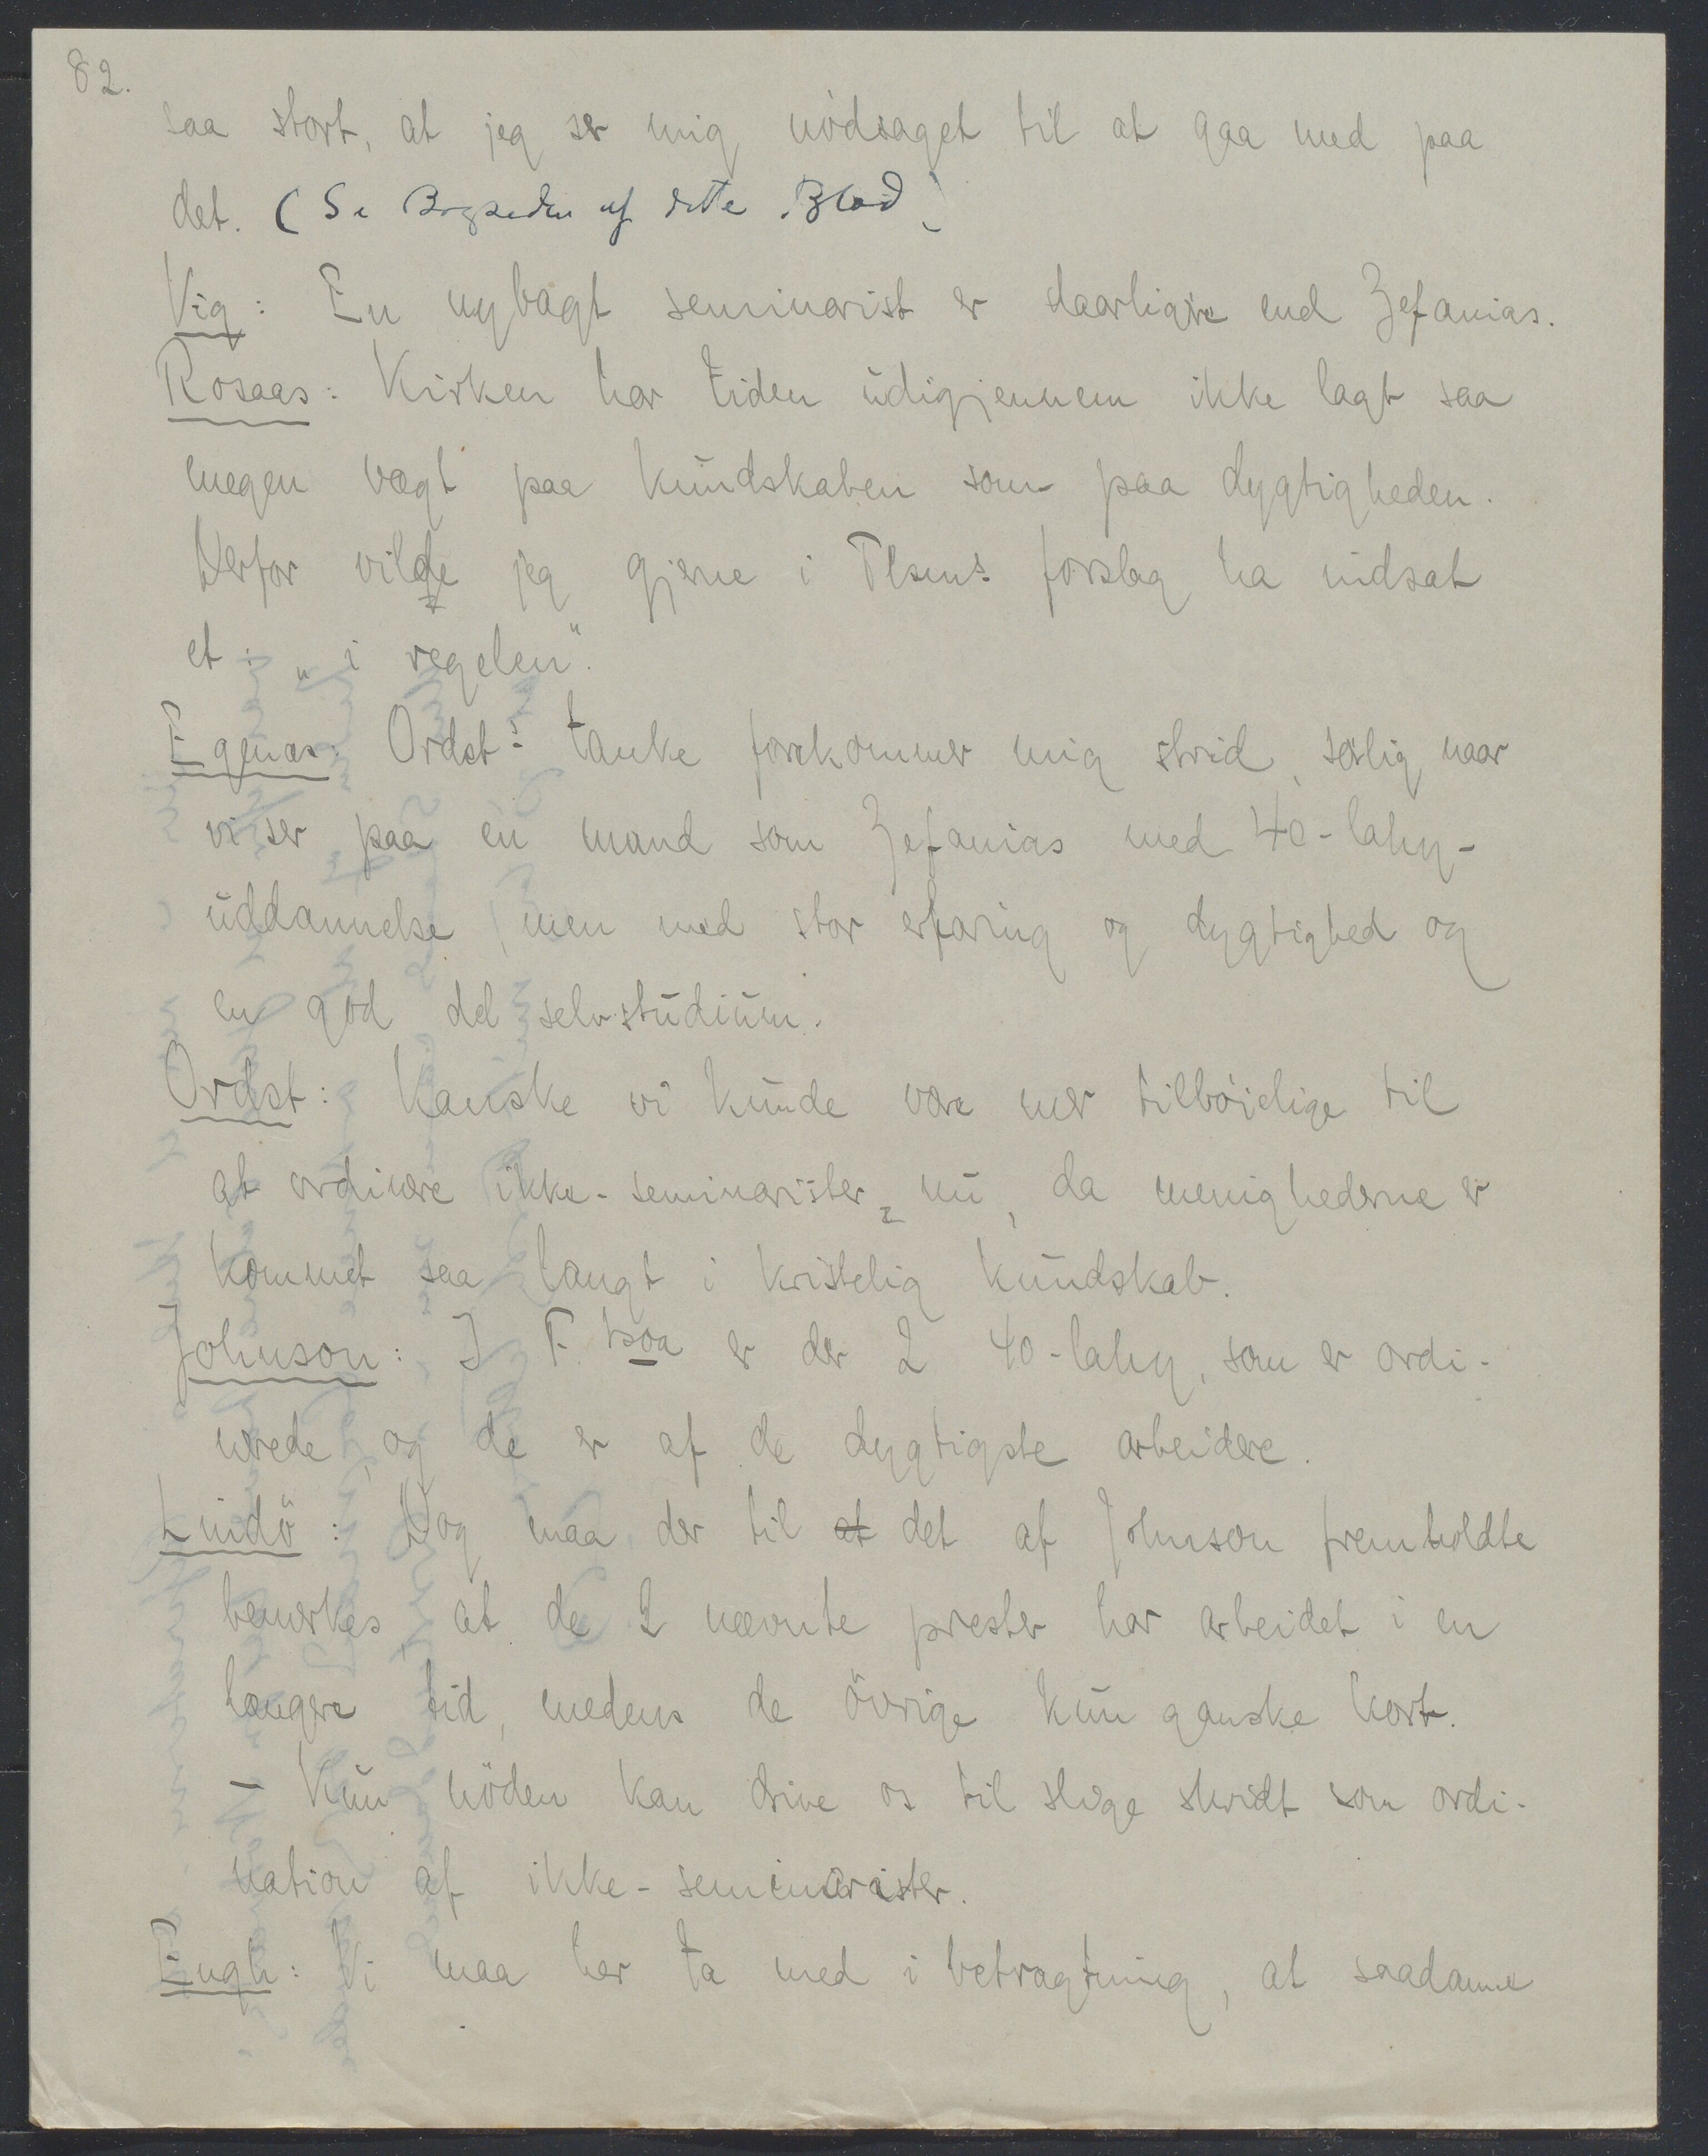 82.
saa stort, at jeg ser mig nödsaget til at gaa med paa
det. (Se Bagsiden af dette Blad)
Vig: En nybagt seminarist er daarligere end Zefanias.
Rosaas: Kirken har tiden udigjennem ikke lagt saa
megen vægt paa kundskaben som paa dygtigheden.
Derfor vilde jeg gjerne i Tlsens forslag ha indsat
et: „i regelen".
Egenæs: Ordsts tanke forekommer mig strid, særlig naar
vi ser paa en mand som Zefanias med 40-lahy-
uddannelse, men med stor erfaring og dygtighed og
en god del selvstudium.
Ordst: Kanske vi kunde være mer tilbøielige til
at ordinere ikke-seminarister nu, da menighederne er
kommet saa langt i kristelig kundskab.
Johnson: I F. tsoa er der 2 40-lahy, som er ordi-
nerede, og de er af de dygtigste arbeidere.
Lindö: Dog maa der til at det af Johnson fremholdte
bemerkes at de 2 nævnte prester har arbeidet i en
længere tid, medens de övrige kun ganske kort.
– Kun nöden kan drive os til slige skridt som ordi-
nation af ikke-seminarister.
Engh: Vi maa her ta med i betragtning, at saadanne